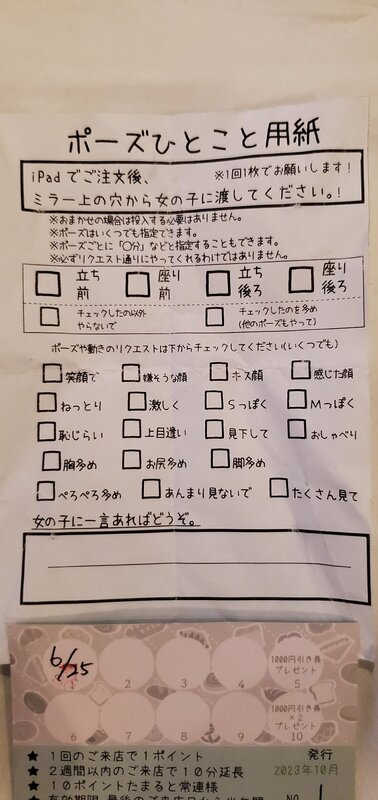 ポーズひとこと用紙
iPadでご注文後、 ※1回1枚でお願いします!
ミラー上の穴から女の子に渡してください。!
※おまかせの場合は投入する必要はありません。
※ポーズはいくつでも指定できます。
※ポーズごとに「〇分」などと指定することもできます。
※必ずリクエスト通りにやってくれるわけではありません。
立ち前 座り前 立ち後ろ 座り後ろ
チェックしたの以外やらないで チェックしたのを多め(他のポーズもやって)
ポーズや動きのリクエストは下からチェックしてください(いくつでも)
笑顔で 嫌そうな顔 キス顔 感じた顔
ねっとり 激しく Sっぽく Mっぽく
恥じらい 上目遣い 見下して おしゃべり
胸多め お尻多め 脚多め
ぺろぺろ多め あんまり見ないで たくさん見て
女の子に一言あればどうぞ。
6/25
1 2 3 4 1000円引き券プレゼント 5
6 7 8 9 1000円引き券×2プレゼント 10
★ 1回のご来店で1ポイント 発行
★ 2週間以内のご来店で10分延長 2023年10月
★ 10ポイントたまると常連様
NO. 1